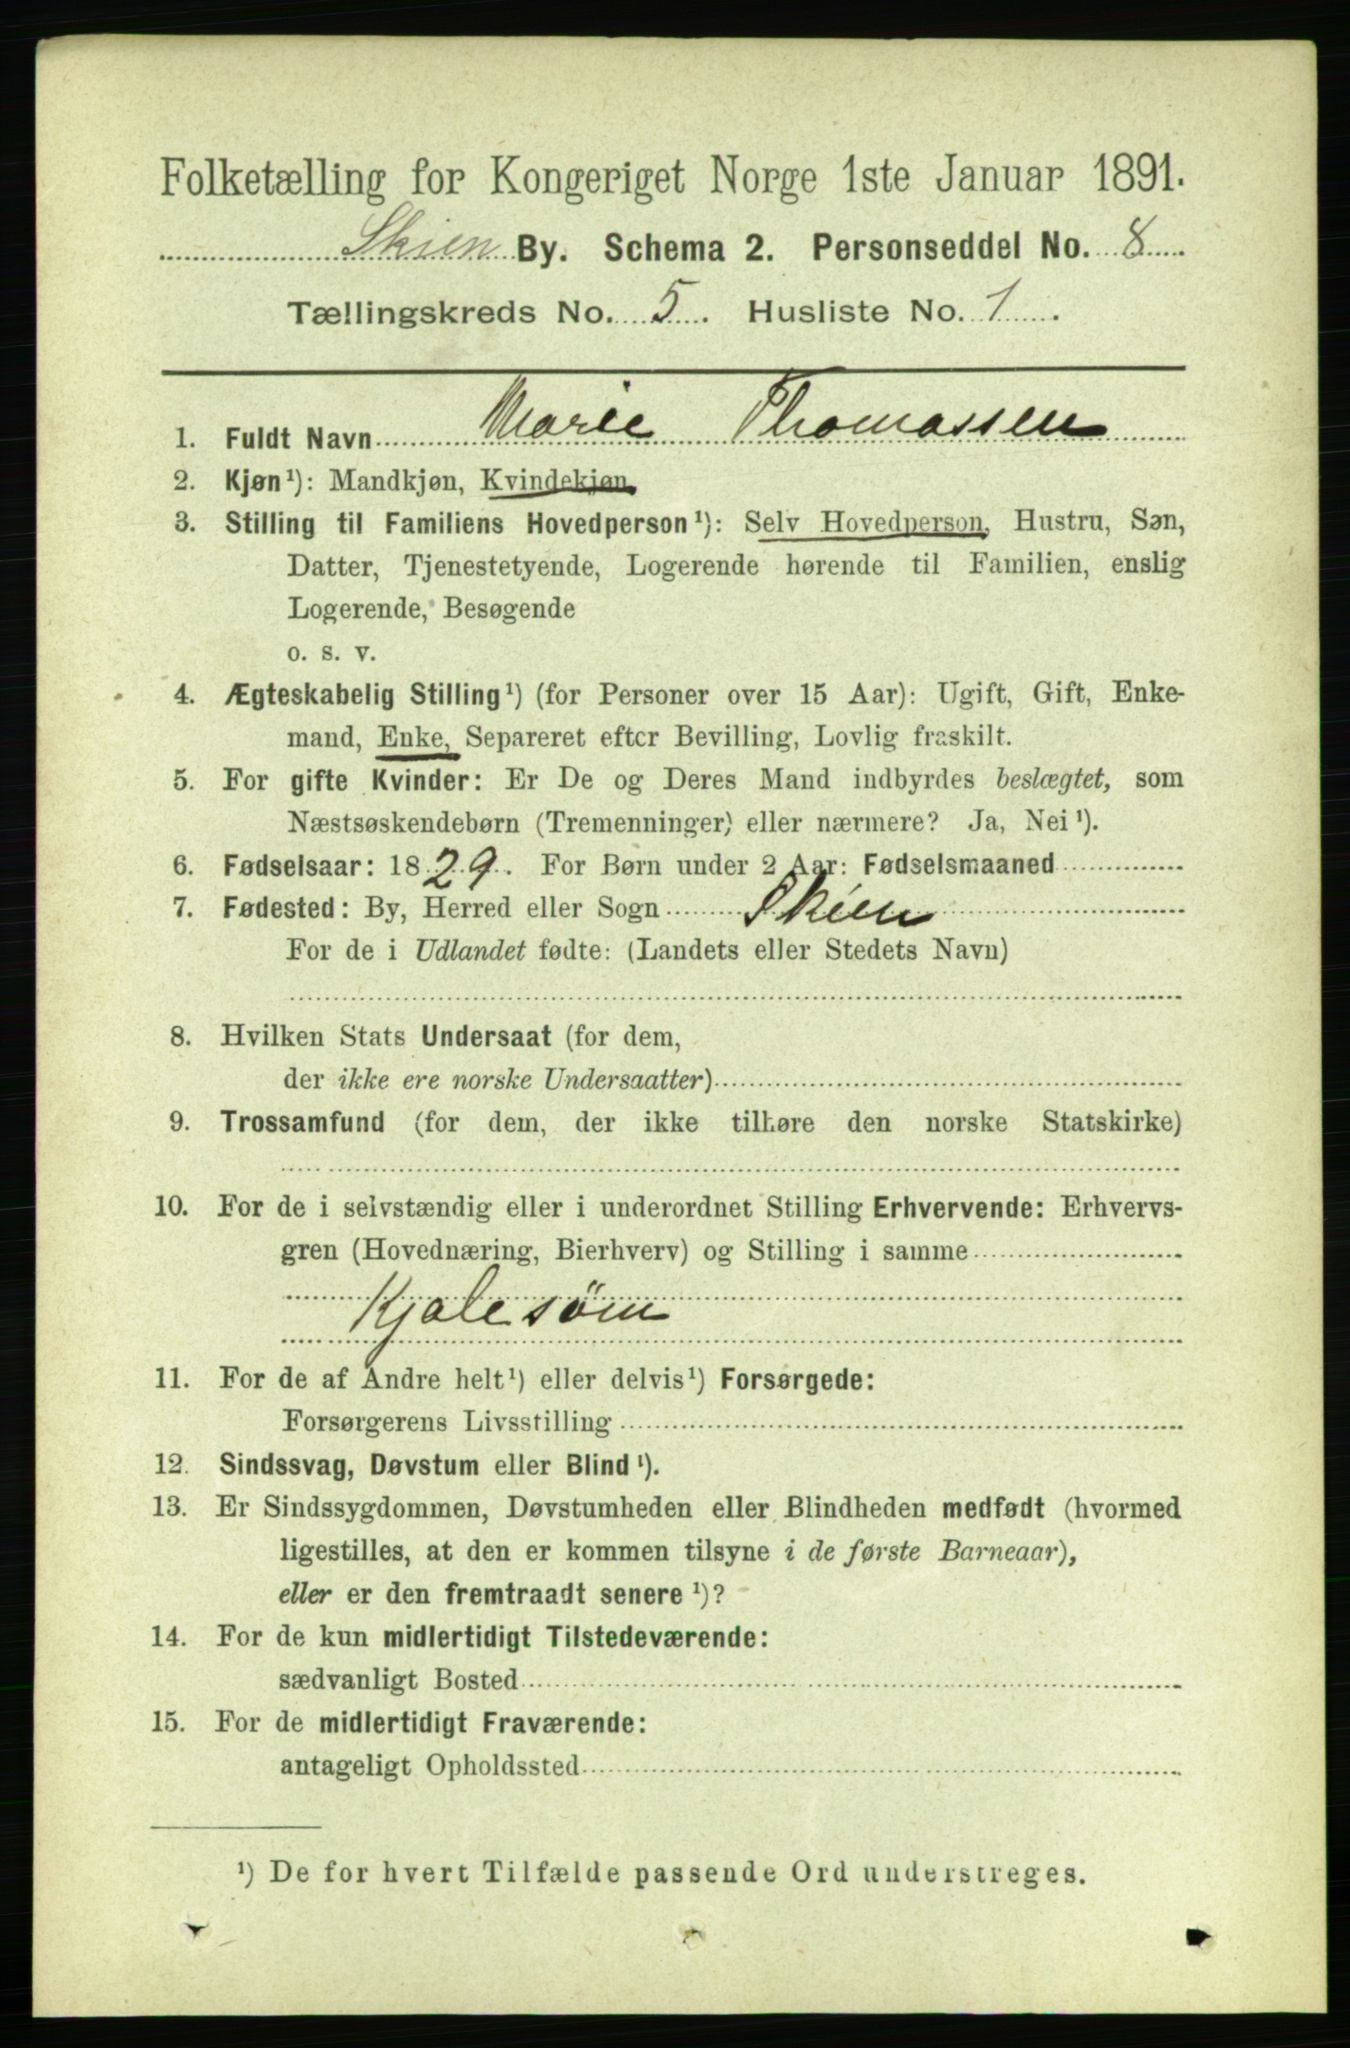 Folketælling for Kongeriget Norge 1ste Januar 1891.
Skien By. Schema 2. Personseddel No. 8
Tællingskreds No. 5. Husliste No. 1.
1. Fuldt Navn Marie Thomassen
2. Kjøn¹): Mandkjøn, Kvindekjøn.
3. Stilling til Familiens Hovedperson¹): Selv Hovedperson, Hustru, Søn,
Datter, Tjenestetyende, Logerende hørende til Familien, enslig
Logerende, Besøgende
o. s. v.
4. Ægteskabelig Stilling¹) (for Personer over 15 Aar): Ugift, Gift, Enke-
mand, Enke, Separeret efter Bevilling, Lovlig fraskilt.
5. For gifte Kvinder: Er De og Deres Mand indbyrdes beslægtet, som
Næstsøskendebørn (Tremenninger) eller nærmere? Ja, Nei¹).
6. Fødselsaar: 1829. For Børn under 2 Aar: Fødselsmaaned
7. Fødested: By, Herred eller Sogn Skien
For de i Udlandet fødte: (Landets eller Stedets Navn)
8. Hvilken Stats Undersaat (for dem,
der ikke ere norske Undersaatter)
9. Trossamfund (for dem, der ikke tilhøre den norske Statskirke)
10. For de i selvstændig eller i underordnet Stilling Erhvervende: Erhvervs-
gren (Hovednæring, Bierhverv) og Stilling i samme
Kjolesøm
11. For de af Andre helt¹) eller delvis¹) Forsørgede:
Forsørgerens Livsstilling
12. Sindssvag, Døvstum eller Blind¹).
13. Er Sindssygdommen, Døvstumheden eller Blindheden medfødt (hvormed
ligestilles, at den er kommen tilsyne i de første Barneaar),
eller er den fremtraadt senere¹)?
14. For de kun midlertidigt Tilstedeværende:
sædvanligt Bosted
15. For de midlertidigt Fraværende:
antageligt Opholdssted
¹) De for hvert Tilfælde passende Ord understreges.